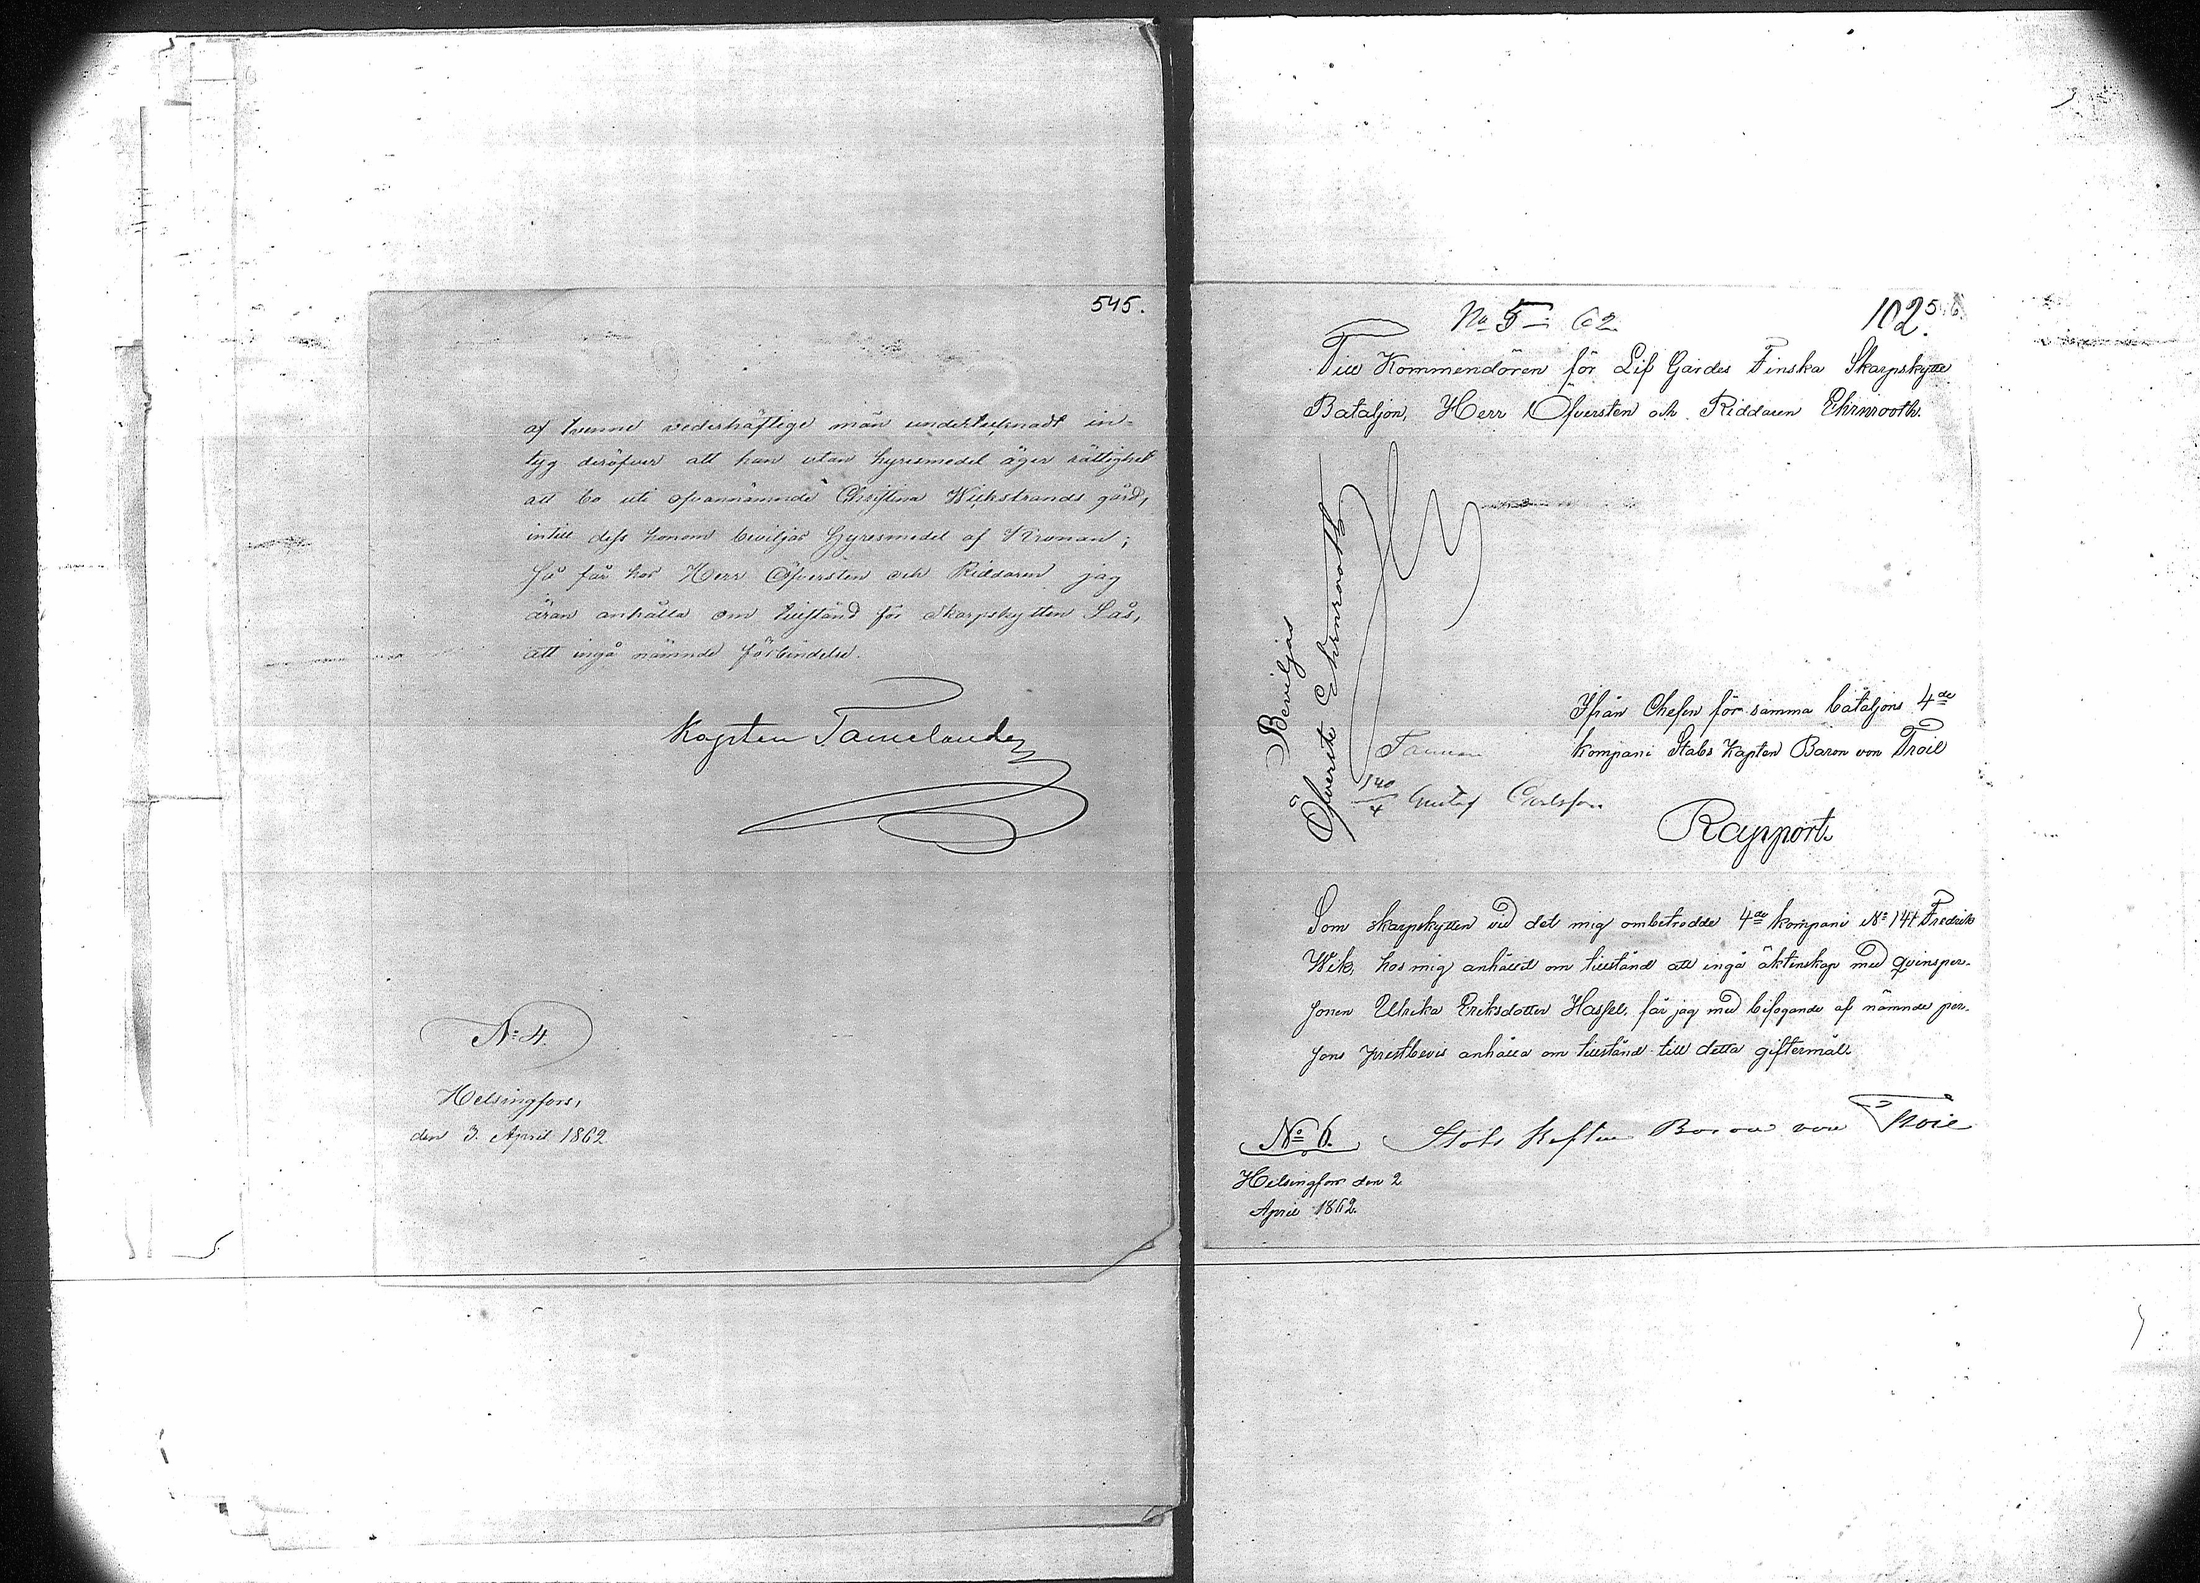 545.
af tvenne vederhäftige män undertecknadt in-
tyg deröfver att han utan hyresmedel äger rättighet
att bo uti ofvannämnde Christina Wickstrands gård,
intill dess honom beviljas hyresmedel af Kronan;
Så får hos Herr Öfversten och Riddaren jag
äran anhålla om tillstånd för Skarpskytten Lås,
att ingå nämnde förbindelse.
Kapten Tamelander
No 4.
Helsingfors,
den 3. April 1862.
No 5 – 62
102.
Till Kommendören för Lif Gardes Finska Skarpskytte
Bataljon, Herr Öfversten och Riddaren Ehrnrooth.
Beviljas
Öfverste Ehrnrooth
Ifrån Chefen för samma bataljons 4de
kompani Stabs Kapten Baron von Troil
140/4 Gustaf Carlsson
Rapport.
Som skarpskytten vid det mig ombetrodde 4de kompani No 141 Fredrik
Wik, hos mig anhållit om tillstånd att ingå äktenskap med qvinsper-
sonen Ulrika Eriksdotter Hassel, får jag med bifogande af nämnde per-
sons prestbevis anhålla om tillstånd till detta giftermål.
Stabs Kapten Baron von Troil
No 6.
Helsingfors den 2
April 1862.